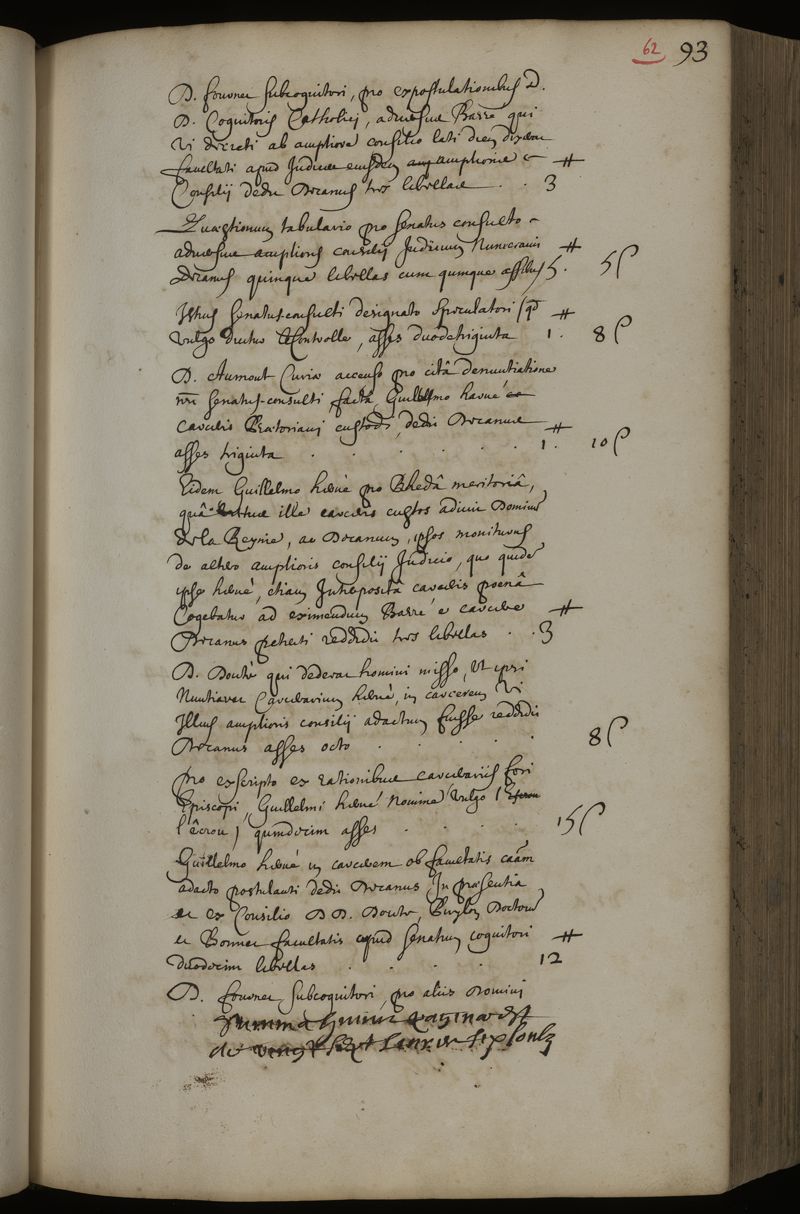 62 93
D. fourner subcognitori, pro expostulationibus D.
D. Cognitoris Catholicj, adversus Barré qui
vi decreti ab ampliore consilio lati diem dixerat
facultati apud Judicem eiusdem amplioris
Consilij dedit Decanus tres libellas . . 3 ⧺
Quæstionum tabulario pro senatus consulto
adversus amplioris consilij Judicium Numeravit
Decanus quinque libellas cum quinque assibus 5 ⧺ . 5 ſ
Istius senatus-consulti designato speculatori (qd
vulgo dicitur Controlle, asses duodetriginta 1 ⧺ . 8 ſ
D. Aumont Curiæ accenso pro citâ denuntiatione
senatus-consulti, factâ Guillelmo havué
carceris Prætorianj custodi, dedit Decanus
asses triginta . . . . . . 1 ⧺ . 10 ſ
Eidem Guillelmo hæué pro Rhedâ meritoriâ,
quâ ille carceris custos adivit Dominum
De la Reynie, ac Decanum, ipsos moniturus
de altero amplioris consilij Judicio, quo quidem
ipse hæué, etiam Interpositâ carceris poenâ
Cogebatur ad eximendum Barré e carcere
Decanus petenti reddidit tres libellas . . 3 ⧺
D. Douté qui dederat homini misso, ut ipsi
Nuntiaret Carcerarium hæué, in carcerem vi
Illius amplioris consilij adactum fuisse reddidit
Decanus asses octo . . . . . 8 ſ
Pro exscripto ex rationibus carcerariis fori
Episcopi, Guillelmi hæué Nomine vulgo (
l'êcrou) quindecim asses . . . . 15 ſ
Guillelmo hæué in carcerem ob facultatis caâm
adacto postulanti dedit Decanus In præsentia
et ex Consilio D D. Douté, Puylon Doctorum
et Bonnet facultatis apud senatum cognitori
duodecim libellas . . . . . 12 ⧺
D. fourner subcognitori, pro aliis Dominj
summa huius paginæ est
de vingt sept livres six solz